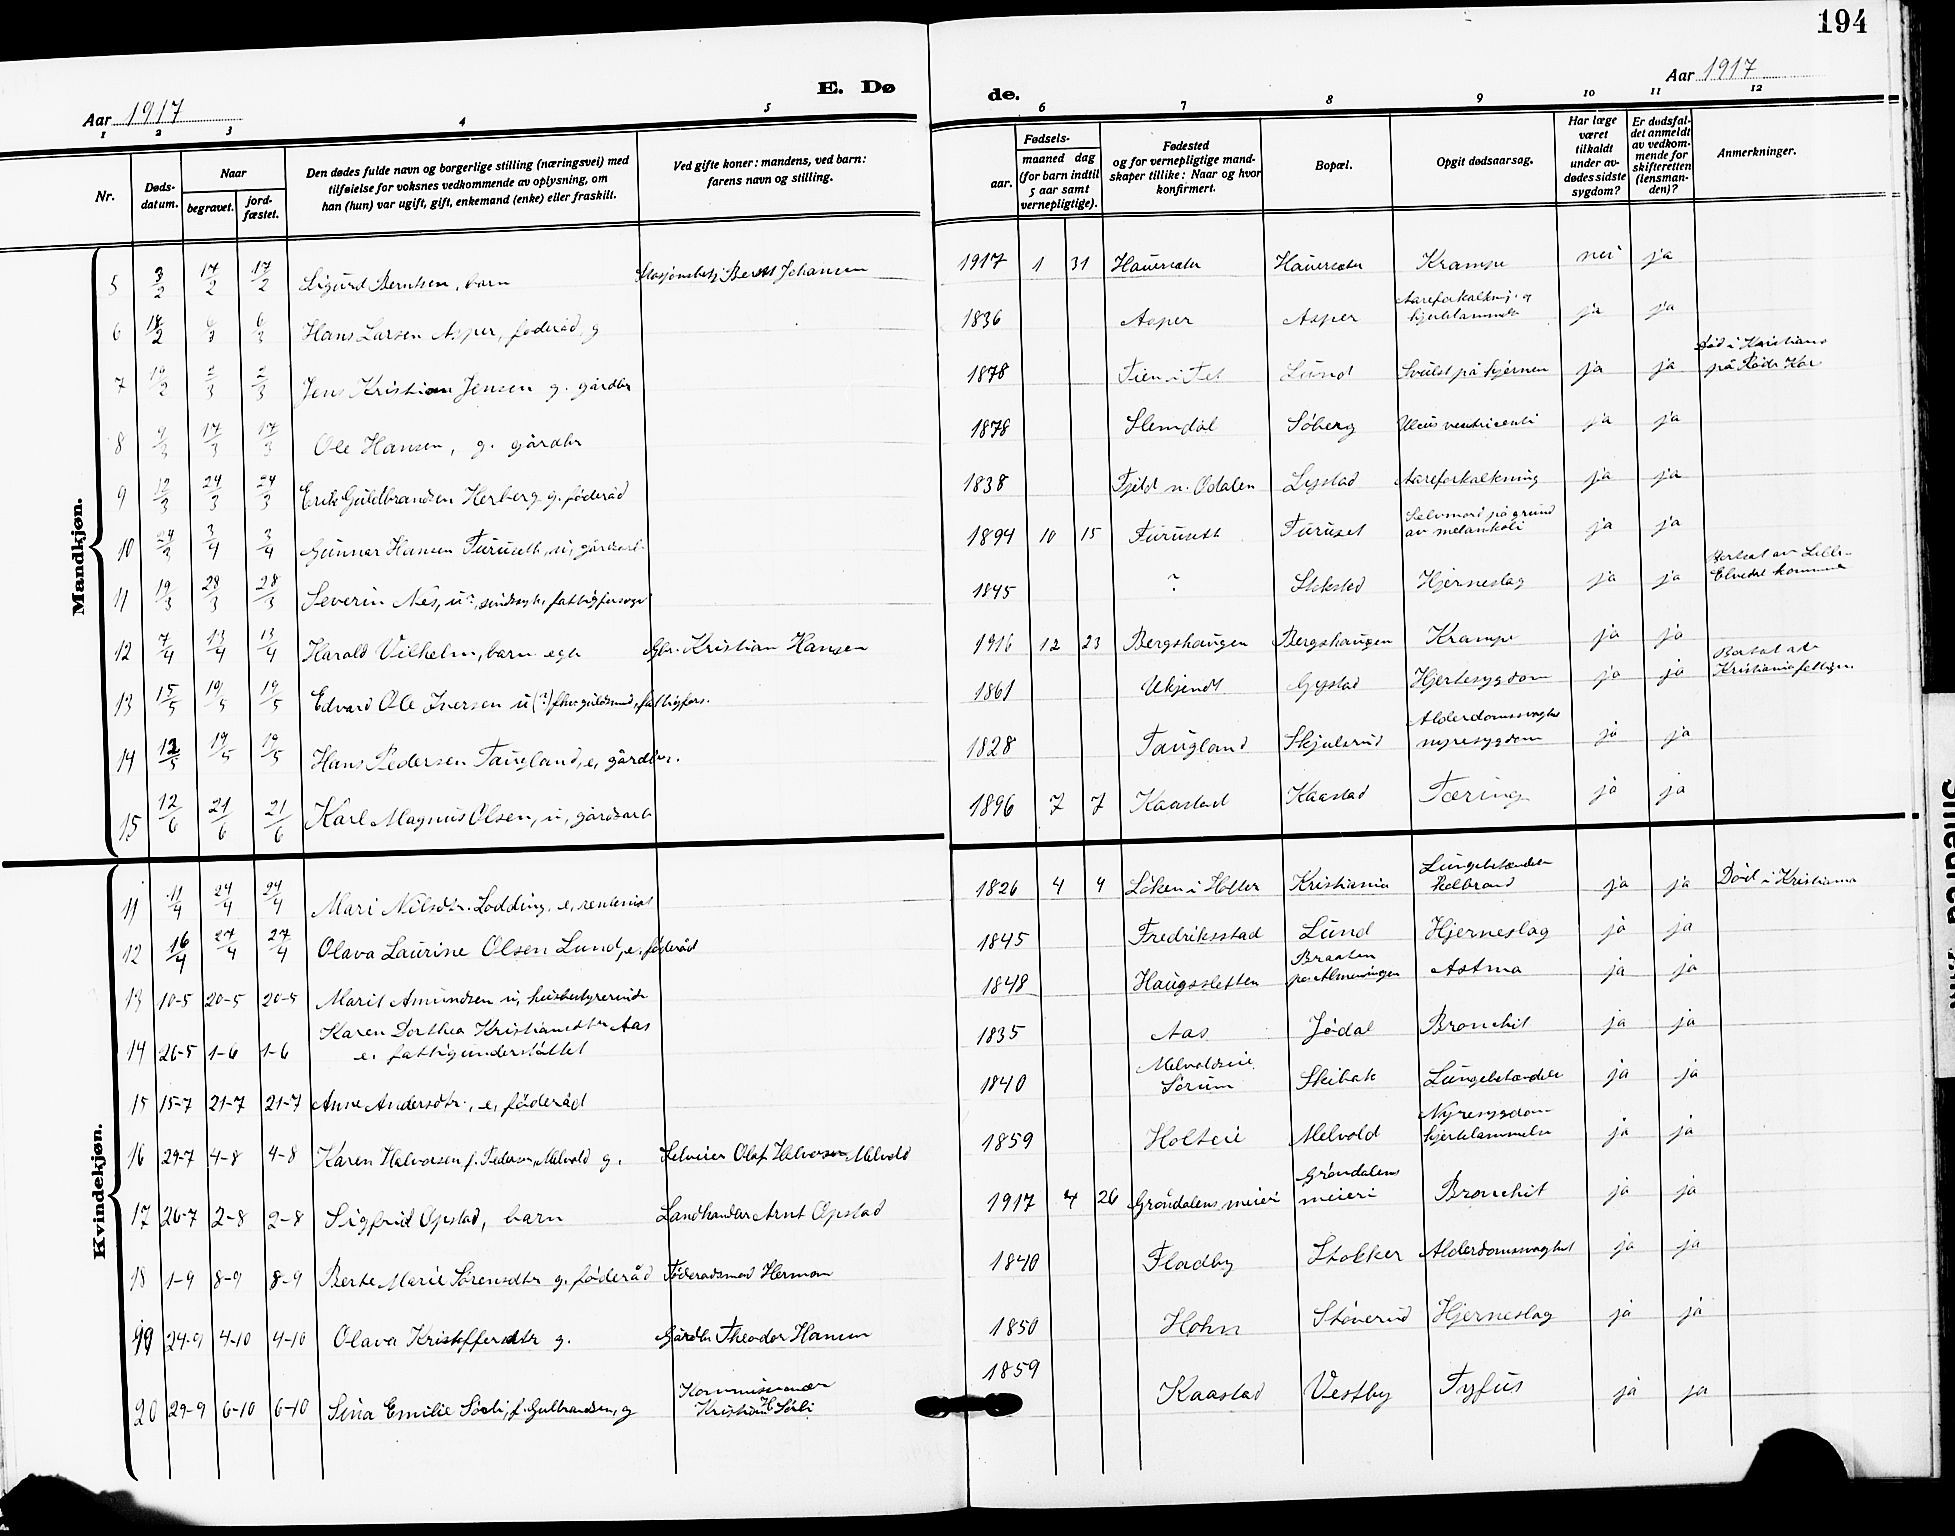 194
Aar 1917
E. Dø
de.
Aar 1917
1 2 3 4 5 6 7 8 9 10 11 12
Nr.
Døds-
datum.
Naar
begravet.
jord-
fæstet.
Den dødes fulde navn og borgerlige stilling (næringsvei) med
tilføielse for voksnes vedkommende av oplysning, om
han (hun) var ugift, gift, enkemand (enke) eller fraskilt.
Ved gifte koner: mandens, ved barn:
farens navn og stilling.
Fødsels-
aar.
maaned dag
(for barn indtil
5 aar samt
vernepligtige).
Fødested
og for vernepligtige mand-
skaper tillike: Naar og hvor
konfirmert.
Bopæl.
Opgit dødsaarsag.
Har læge
været
tilkaldt
under av-
dødes sidste
sygdom?
Er dødsfal-
det anmeldt
av vedkom-
mende for
skifteretten
(lensman-
den)?
Anmerkninger.
Mandkjøn.
5 3/2 17/2 17/2 Sigurd Berntsen, barn Bernt Johansen 1917 1 31 Hauersæter Hauersæter Krampe nei ja
6 18/2 6/3 6/3 Hans Larsen Asper, føderåd, g 1836 Asper Asper Aareforkalkning og
hjertelammelse ja ja
7 2/3 2/3 Jens Kristian Jensen g. gårdbr 1878 Tien i Fet Lund Svulst på hjernen ja ja Død i Kristiania
på Røde Kors
8 9/3 17/3 17/3 Ole Hansen, g. gårdbr 1878 Slemdal Søberg Ulcus ventriculi ja ja
9 12/3 24/3 24/3 Erik Guldbrandsen Herberg g. føderåd 1838 Fjeld n. Odalen Lystad Aareforkalkning ja ja
10 24/3 3/4 3/4 Gunnar Hansen Furuseth, u, gårdsarb. 1894 10 15 Furuseth Furuset Selvmord på grund
av melankoli ja ja
11 19/3 28/3 28/3 Severin Nes, u?, sindssyk, fattigforsørget 1845 ? Stokstad Hjerneslag ja ja Bortsat av Lille-
Elvedal kommune
12 7/4 13/4 13/4 Harald Vilhelm, barn egte Gbr. Kristian Hansen 1916 12 23 Bergshaugen Bergshaugen Krampe ja ja
13 15/5 19/5 19/5 Edvard Ole Iversen u (?) fhv. guldsmed, fattigfors. 1861 Ukjendt Gystad Hjertesygdom ja ja Bortsat av
Kristiania
14 12/5 19/5 19/5 Hans Pedersen Taugland, e, gårdbr. 1828 Taugland Skjulerud Alderdomssvaghet
nyresygdom ja ja
15 12/6 21/6 21/6 Karl Magnus Olsen, u, gårdsarb 1896 7 7 Kaastad Kaastad Tæring ja ja
Kvindekjøn.
11 11/4 24/4 24/4 Mari Nilsdtr. Lodding, e, rentenist 1826 4 9 Løken i Høller Kristiania Lungebetændelse
ja ja Død i Kristiania
12 16/4 27/4 27/4 Olava Laurine Olsen Lund, e. føderåd 1845 Fredriksstad Lund Hjerneslag ja ja
13 10-5 20-5 20-5 Marit Amundsen u, husbestyrerinde 1848 Haugssletten Braaten
paa Almeningen Astma ja ja
14 26-5 1-6 1-6 Karen Dorthea Kristiansdtr Aas
e. fattigunderstøttet 1835 Aas Jødal Bronchit ja ja
15 15-7 21-7 21-7 Anne Andersdtr., e, føderåd 1840 Melvoldseie
Sørum Skibak Lungebetændelse ja ja
16 29-7 4-8 4-8 Karen Halvorsen f. Pedersen, Melvold g. Selveier Olaf Halvorsen Melvold 1859 Holteie Melvold Nyresygdom
hjertelammelse ja ja
17 26-7 2-8 2-8 Sigfrid Opstad, barn Landhandler Arnt Opstad 1917 4 26 Grøndalens meieri Grøndalens
meieri Bronchit ja ja
18 1-9 8-9 8-9 Berte Marie Sørensdtr g. føderåd Føderaadsmand Herman 1840 Fladby Stokker Alderdomssvaghet ja ja
19 24-9 4-10 4-10 Olava Kristoffersdtr g. Gårdbr Theodor Hansen 1850 Hohn Støverud Hjerneslag ja ja
20 29-9 6-10 6-10 Sina Emilie Sørli, f. Gulbrandsen, g Kommissionær
Kristian H Sørli 1859 Kaastad Vestby Tyfus ja ja